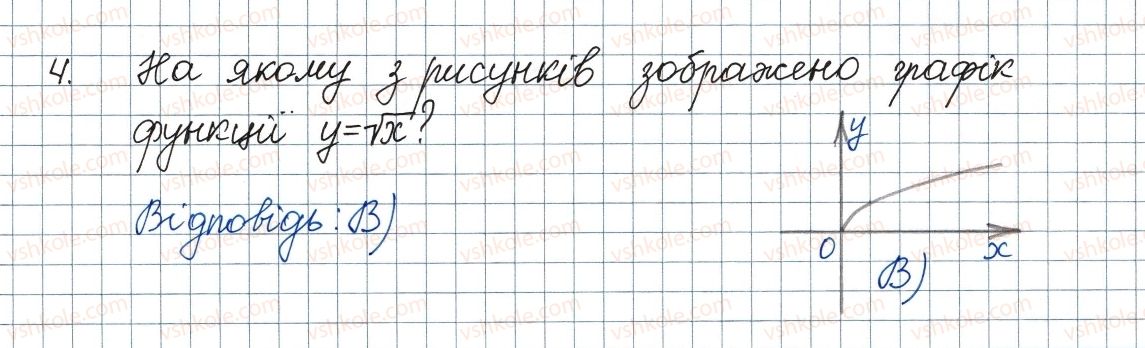 4. На якому з рисунків зображено графік
функції y=√x?
Відповідь: В)
y
0
x
В)